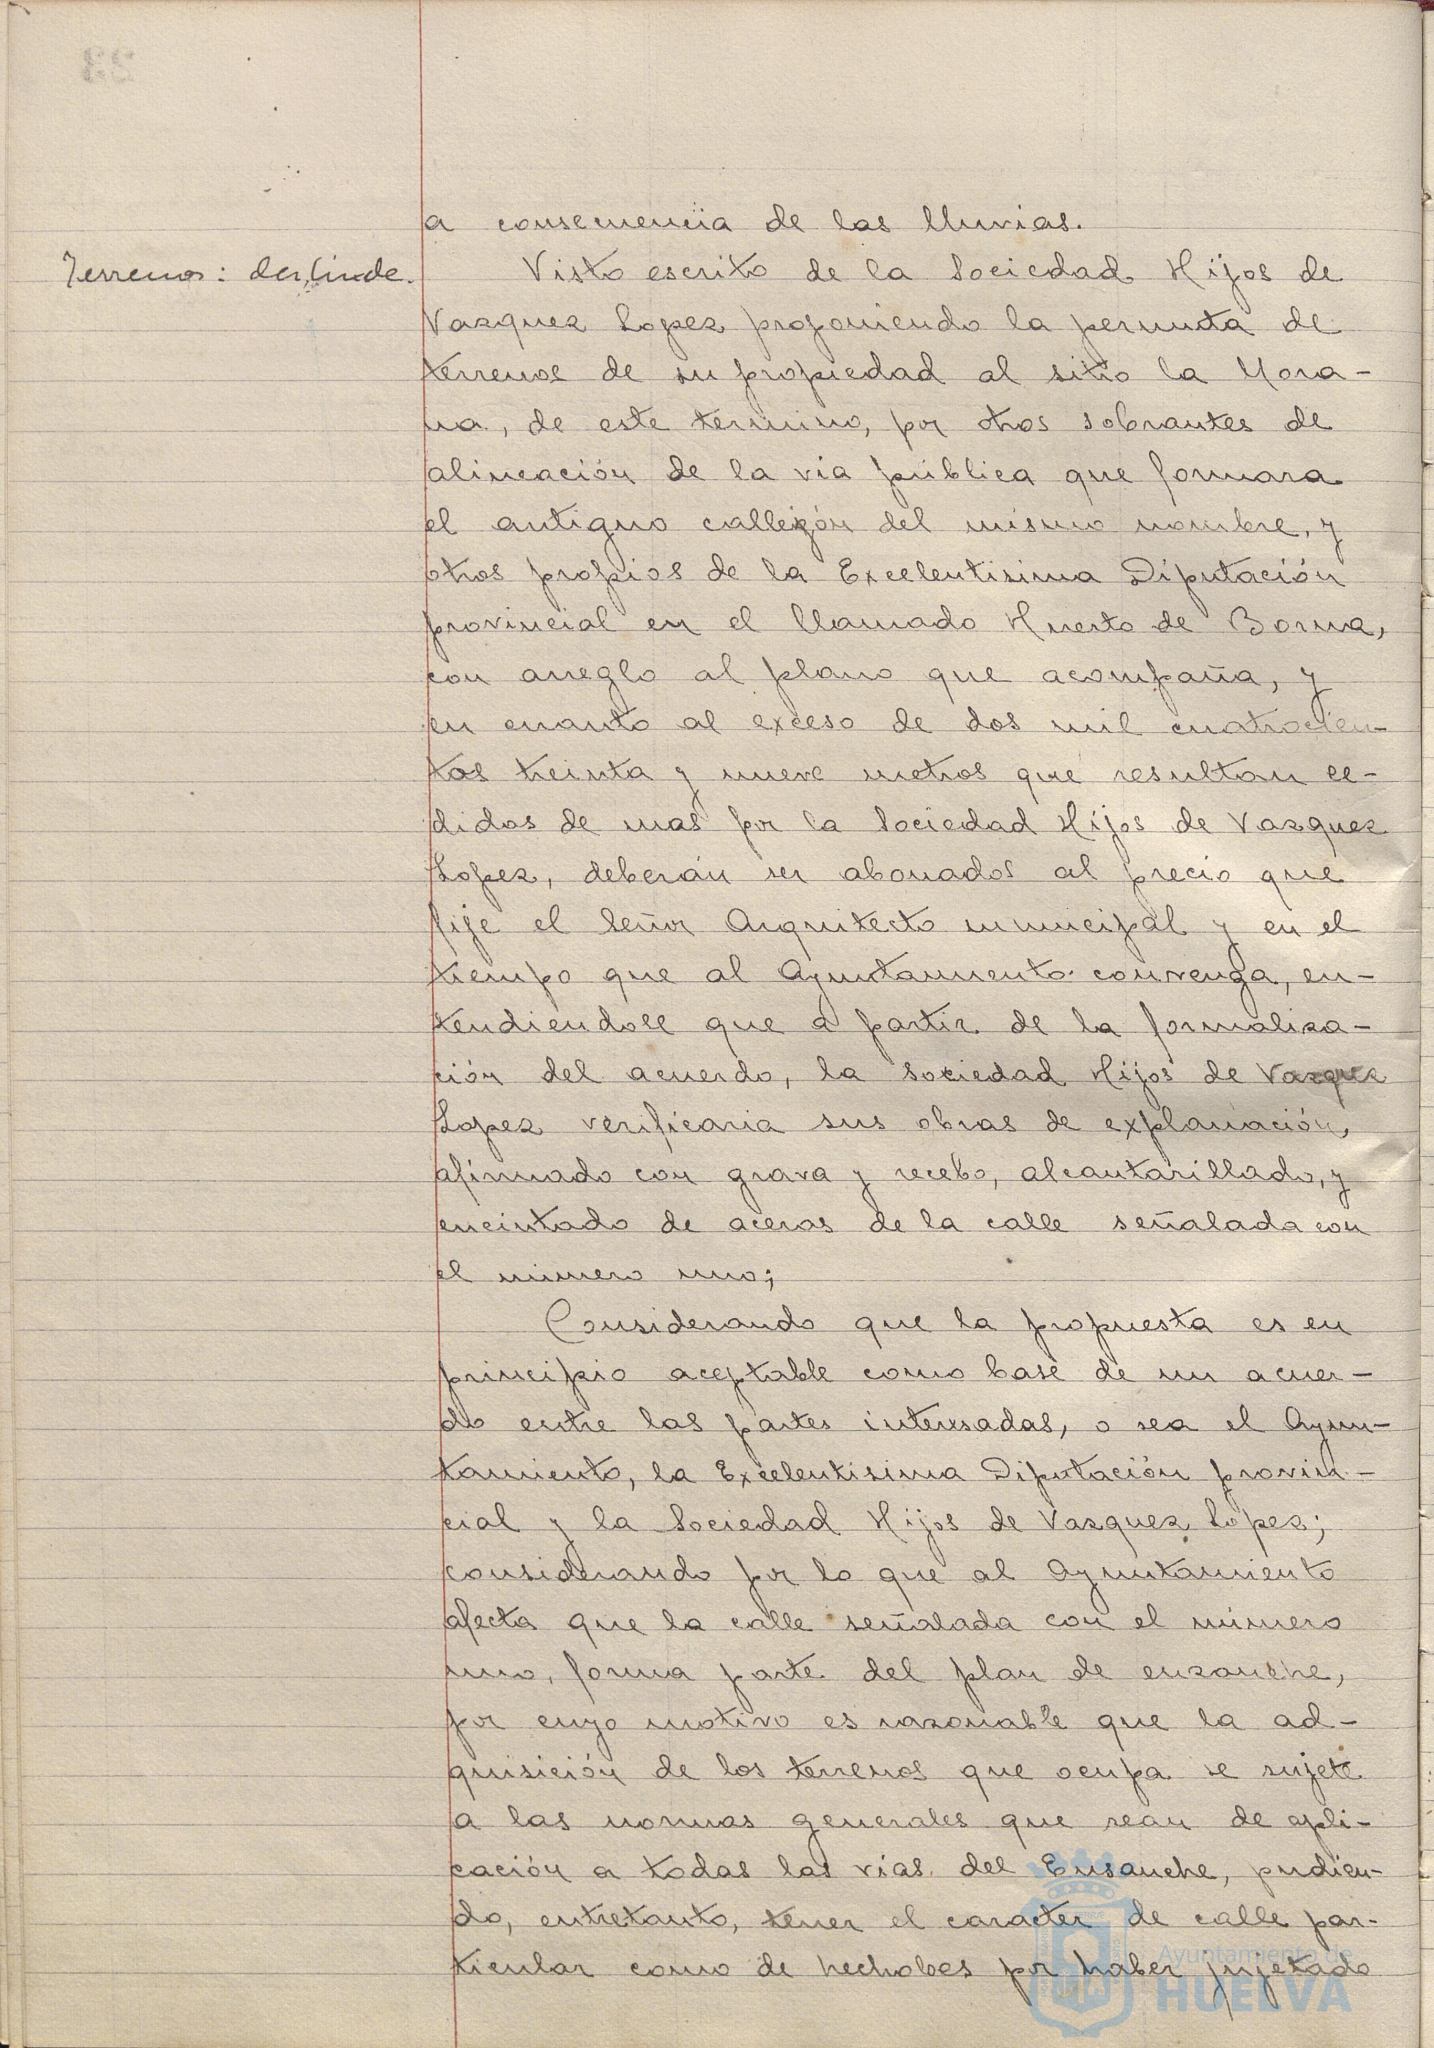 a consecuencia de las lluvias.
Terrenos: deslinde.
Visto escrito de la Sociedad Hijos de
Vazquez Lopez proponiendo la permuta de
terrenos de su propiedad al sitio la Mora-
na, de este termino, por otros sobrantes de
alineación de la via pública que formara
el antiguo callejón del mismo nombre, y
otros propios de la Excelentisima Diputación
provincial en el llamado Huerto de Borna,
con arreglo al plano que acompaña, y
en cuanto al exceso de dos mil cuatrocien-
tos treinta y nueve metros que resultan ce-
didos de mas por la Sociedad Hijos de Vazquez
Lopez, deberán ser abonados al precio que
fije el Señor Arquitecto municipal y en el
tiempo que al Ayuntamiento convenga, en-
tendiéndose que a partir de la formaliza-
ción del acuerdo, la Sociedad Hijos de Vazquez
Lopez verificaria sus obras de explanación,
afirmado con grava y recebo, alcantarillado, y
encintado de aceras de la calle señalada con
el número uno;
Considerando que la propuesta es en
principio aceptable como base de un acuer-
do entre las partes interesadas, o sea el Ayun-
tamiento, la Excelentisima Diputación provin-
cial y la Sociedad Hijos de Vazquez Lopez;
considerando por lo que al Ayuntamiento
afecta que la calle señalada con el número
uno, forma parte del plan de enzanche,
por cuyo motivo es razonable que la ad-
quisición de los terrenos que ocupa se sujete
a las normas generales que sean de apli-
cación a todas las vias del Ensanche, pudien-
do, entretanto, tener el caracter de calle par-
ticular como de hecho lo es por haber sujetado
Ayuntamiento de
HUELVA